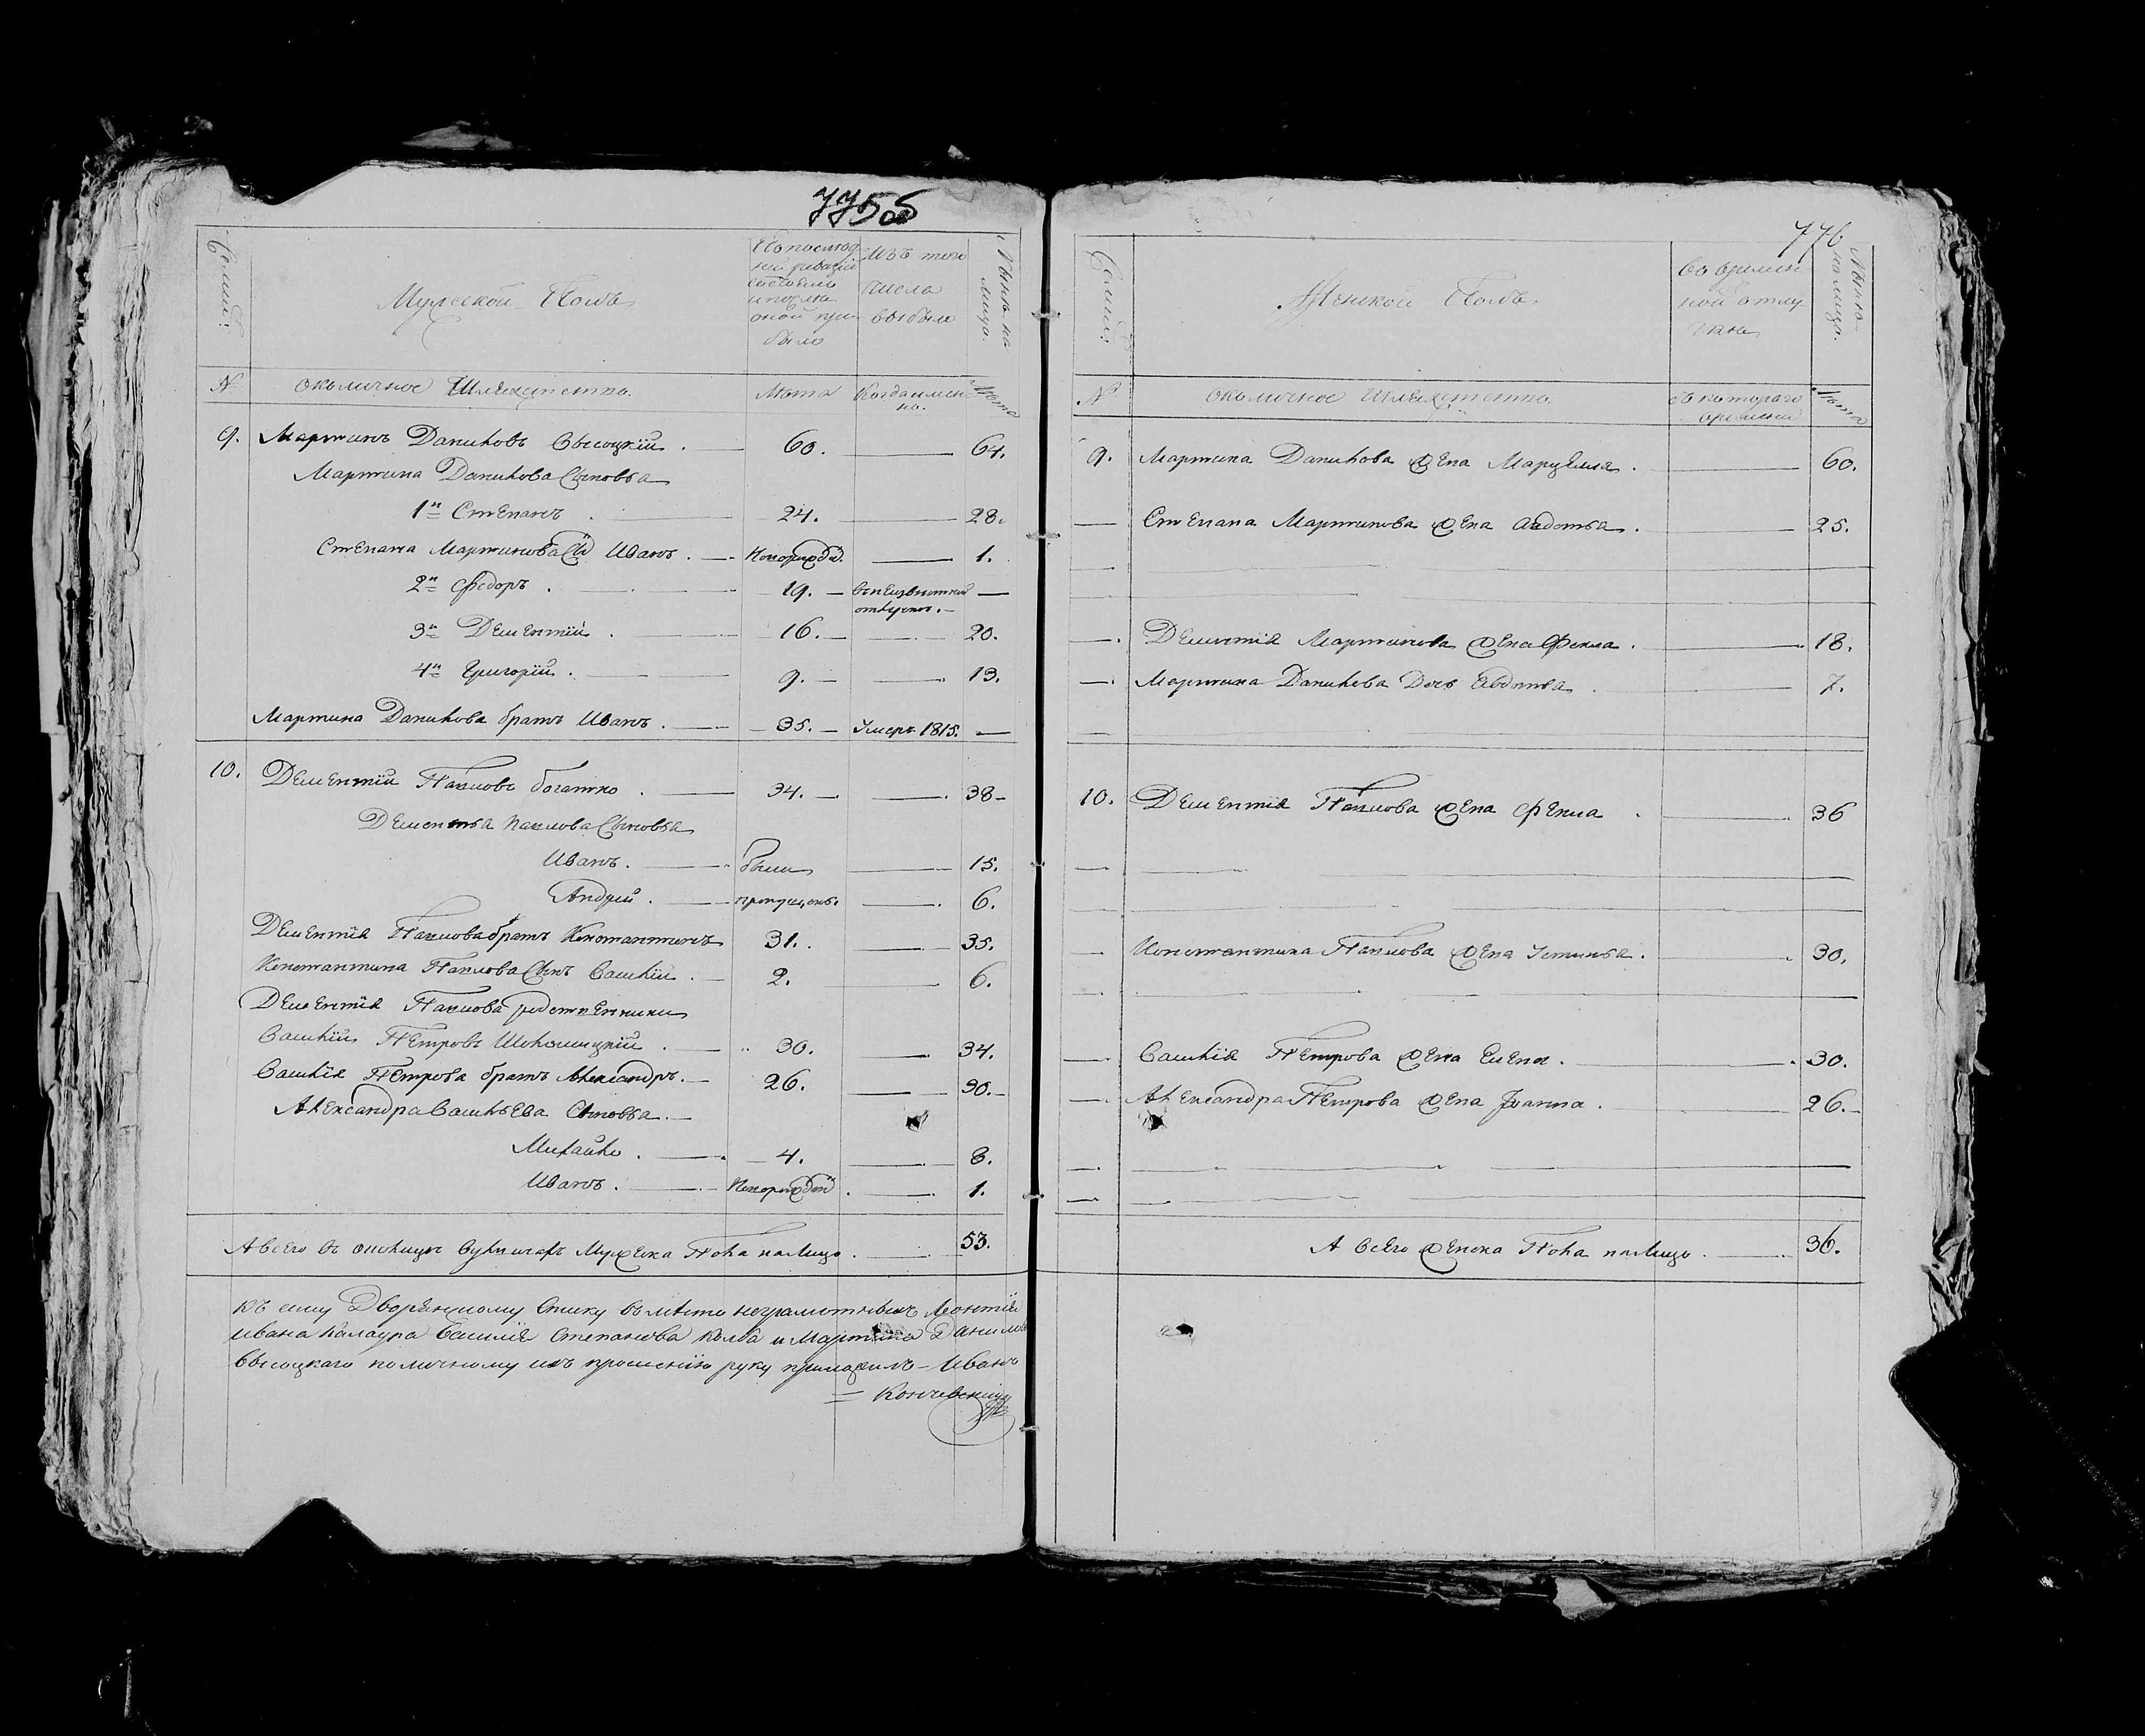 775 об
Семьи:
Мужеской Полъ
По послед
ней ревизiи
состояло
и после
оной при-
было
Изъ того
числа
выбыло
Ныне на
лицо.
№
околичное Шляхетство.
Лета
Когда имен-
но.
Лета
9. Мартинъ Даниловъ Высоцкiй. 60. 64.
Мартина Данилова Сыновья
1й Степанъ 24. 28.
Степана Мартинова Сы Иванъ. Новорожд. 1.
2й Федоръ. 19. въ неизвестной
отлучке.
3й Дементiй 16. 20.
4й Григорiй. 9. 13.
Мартина Данилова братъ Иванъ. 35. Умеръ 1815.
10. Дементiй Павловъ Богатко. 34. 38
Дементья Павлова Сыновья
Иванъ. были 15.
Андрей. пропущены. 6.
Дементiя Павлова братъ Константинъ 31. 35.
Константина Павлова Сынъ Василiй. 2. 6.
Дементiя Павлова родственники
Василiй Петровъ 30. 34.
Василiя Петрова братъ Александръ. 26. 30.
Александра Васильева Сыновья.
Михайло. 4. 8.
Иванъ. Новорожденный. 1.
А всего въ околице Мужеска Пола на Лицо. 53.
Къ сему Дворянскому Списку вместо неграмотныхъ Леонтiя
Ивана Калаура Василiя Степанова Колба и Мартина Данилова
Высоцкаго по личному ихъ прошенiю руку приложилъ - Иванъ
= Кончевскiй
776
Семьи:
Женской Полъ
Во времен
ной отлу-
чке
Ныне
на лицо.
№
околичное Шляхетство
съ котораго
времени
Лета
9. Мартина Данилова жена Марцелла. 60.
Степана Мартинова жена Авдотья. 25.
Дементiя Мартинова жена Фекла. 18.
Мартина Данилова Дочь Авдотья 7.
10. Дементiя Павлова жена Фекла 36
Константина Павлова жена Устинья. 30.
Василiя Петрова жена Елена. 30.
Александра Петрова жена Iоанна. 26.
А всего женска Пола на Лицо. 36.